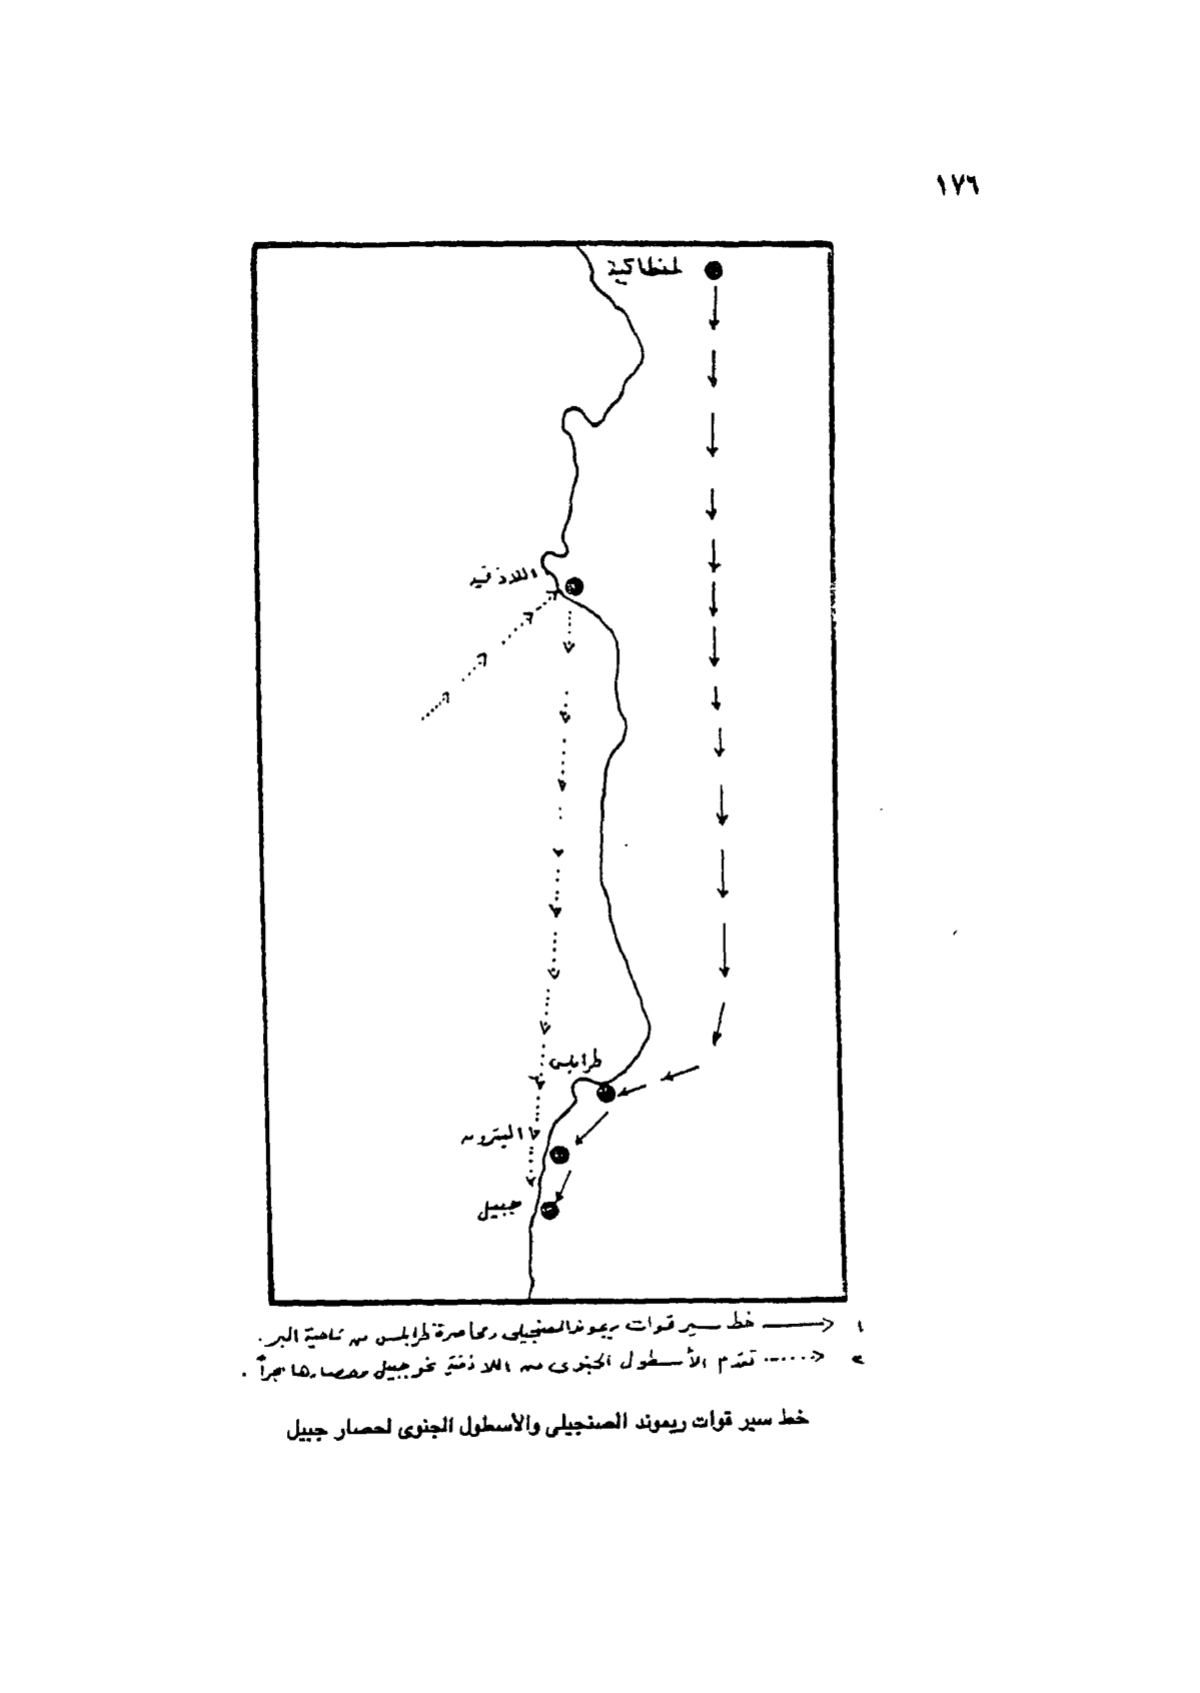 ١٧٦
انطاكية
اللاذقية
طرابلس
البترون
جبيل
١ خط سير قوات ريموند الصنجيلى ومحاصرة طرابلس من ناحية البر.
٢ تقدم الأسطول الجنوى من اللاذقية نحو جبيل وحصارها بحراً.
خط سير قوات ريموند الصنجيلى والأسطول الجنوى لحصار جبيل